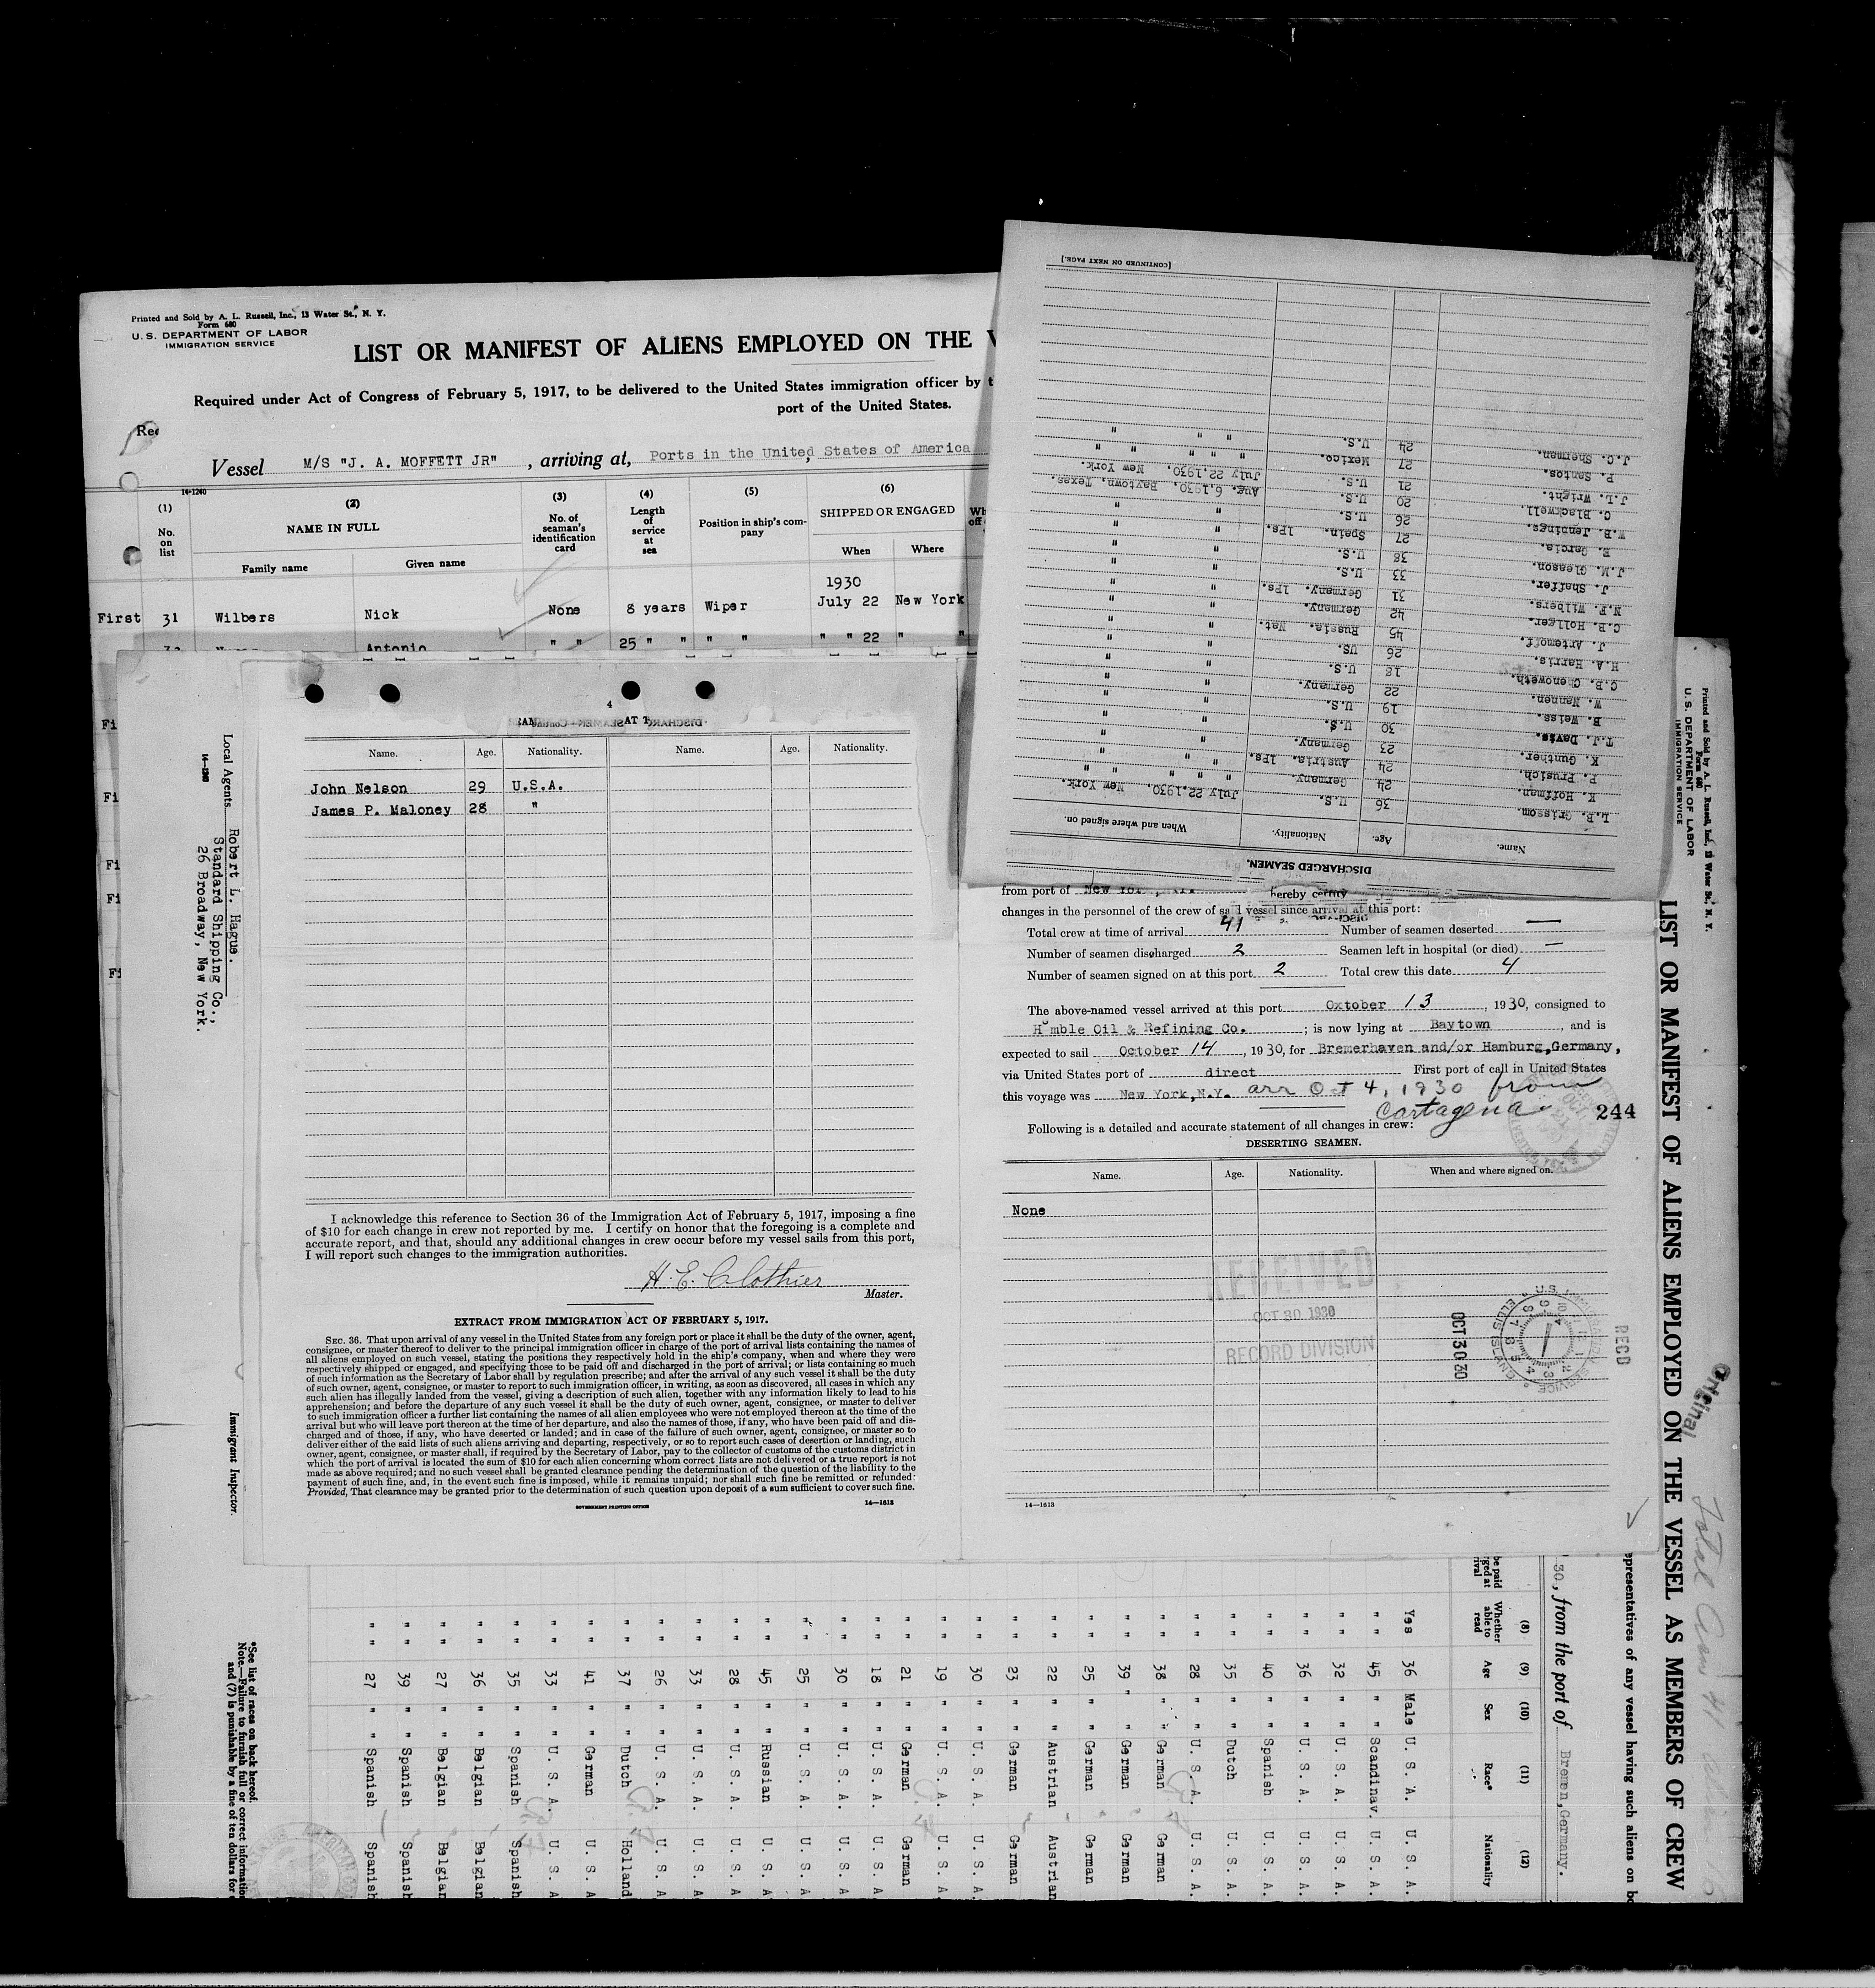 Printed and Sold by A. L. Russell, Inc., 13 Water St., N. Y.
Form 680
U. S. DEPARTMENT OF LABOR
IMMIGRATION SERVICE
LIST OR MANIFEST OF ALIENS EMPLOYED ON THE V
Required under Act of Congress of February 5, 1917, to be delivered to the United States immigration officer by t
port of the United States.
Rec
Vessel M/S "J. A. MOFFETT JR" , arriving at, Ports in the United States of America
14-1240
(1) (2) (3) (4) (5) (6)
No. on list NAME IN FULL No. of seaman's identification card Length of service at sea Position in ship's company SHIPPED OR ENGAGED
Family name Given name When Where
1930
First 31 Wilbers Nick None 8 years Wiper July 22 New York
Antonio " " 25 " " " " " " 22 " "
[CONTINUED ON NEXT PAGE.]
DISCHARGED SEAMEN.
Name. Age. Nationality. When and where signed on.
L.P. Grissom. 36 U.S. July 22,1930. New York.
K. Hoffman. 24 Germany. " " " "
P. Prusich. 24 Austria. 1Ps. " "
K. Gunther. 23 Germany. " "
T.J. Davis. 30 U.S. " "
B. Weiss. 19 U.S. " "
W. Nannen. 22 Germany. " "
C.B. Chenoweth. 18 U.S. " "
H.A. Harris. 26 US. " "
J. Artemoff. 45 Russia. Nat. " "
C.B. Hollger. 42 Germany. " "
N.F. Wilbers. 31 Germany. 1Ps. " "
J. Shaffer. 33 U.S. " "
J.M. Gleason. 38 U.S. " "
E. Garcia. 27 Spain. 1Ps. " "
W.B. Jennings. 26 U.S. " "
C. Blackwell. 20 U.S. Aug. 6,1930. Baytown, Texas.
J.L. Wright. 21 U.S. July 22,1930. New York.
P. Santos. 27 Mexico. " " " " "
J.C. Sherman. 24 U.S. " " "
4
Name. Age. Nationality. Name. Age. Nationality.
John Nelson 29 U.S.A.
James P. Maloney 28 "
I acknowledge this reference to Section 36 of the Immigration Act of February 5, 1917, imposing a fine
of $10 for each change in crew not reported by me. I certify on honor that the foregoing is a complete and
accurate report, and that, should any additional changes in crew occur before my vessel sails from this port,
I will report such changes to the immigration authorities.
H. E. Clothier
Master.
EXTRACT FROM IMMIGRATION ACT OF FEBRUARY 5, 1917.
SEC. 36. That upon arrival of any vessel in the United States from any foreign port or place it shall be the duty of the owner, agent,
consignee, or master thereof to deliver to the principal immigration officer in charge of the port of arrival lists containing the names of
all aliens employed on such vessel, stating the positions they respectively hold in the ship's company, when and where they were
respectively shipped or engaged, and specifying those to be paid off and discharged in the port of arrival; or lists containing so much
of such information as the Secretary of Labor shall by regulation prescribe; and after the arrival of any such vessel it shall be the duty
of such owner, agent, consignee, or master to report to such immigration officer, in writing, as soon as discovered, all cases in which any
such alien has illegally landed from the vessel, giving a description of such alien, together with any information likely to lead to his
apprehension; and before the departure of any such vessel it shall be the duty of such owner, agent, consignee, or master to deliver
to such immigration officer a further list containing the names of all alien employees who were not employed thereon at the time of the
arrival but who will leave port thereon at the time of her departure, and also the names of those, if any, who have been paid off and dis-
charged and of those, if any, who have deserted or landed; and in case of the failure of such owner, agent, consignee, or master so to
deliver either of the said lists of such aliens arriving and departing, respectively, or so to report such cases of desertion or landing, such
owner, agent, consignee, or master shall, if required by the Secretary of Labor, pay to the collector of customs of the customs district in
which the port of arrival is located the sum of $10 for each alien concerning whom correct lists are not delivered or a true report is not
made as above required; and no such vessel shall be granted clearance pending the determination of the question of the liability to the
payment of such fine, and, in the event such fine is imposed, while it remains unpaid; nor shall such fine be remitted or refunded:
Provided, That clearance may be granted prior to the determination of such question upon deposit of a sum sufficient to cover such fine.
GOVERNMENT PRINTING OFFICE 14—1613
from port of New York hereby certify
changes in the personnel of the crew of said vessel since arrival at this port:
Total crew at time of arrival 41 Number of seamen deserted —
Number of seamen discharged 2 Seamen left in hospital (or died) —
Number of seamen signed on at this port 2 Total crew this date 4
The above-named vessel arrived at this port Oxtober 13, 1930, consigned to
Humble Oil & Refining Co. ; is now lying at Baytown, and is
expected to sail October 14, 1930, for Bremerhaven and/or Hamburg,Germany,
via United States port of direct First port of call in United States
this voyage was New York,N.Y. arr Oct 4, 1930 from
Cartagena 244
Following is a detailed and accurate statement of all changes in crew:
DESERTING SEAMEN.
Name. Age. Nationality. When and where signed on.
None
RECEIVED
OCT 30 1930
RECORD DIVISION
OCT 30 30
REC'D
14—1613
Fi
Fi
Fi
Fi
Fi
Local Agents Robert L. Hague.
Standard Shipping Co.,
26 Broadway, New York.
14—1240
Immigrant Inspector.
*See list of races on back hereof.
Note.—Failure to furnish full or correct information
and (7) is punishable by a fine of ten dollars for
Printed and Sold by A. L. Russell, Inc., 13 Water St., N. Y.
Form 680
U. S. DEPARTMENT OF LABOR
IMMIGRATION SERVICE
LIST OR MANIFEST OF ALIENS EMPLOYED ON THE VESSEL AS MEMBERS OF CREW
Original
Total Crew 41
epresentatives of any vessel having such aliens on bo
30, from the port of Bremen,Germany.
(8) (9) (10) (11) (12)
Whether able to read Age Sex Race* Nationality
Yes 36 Male U. S. A. U. S. A.
" " 45 " " Scandinav. U. S. A.
" " 32 " " U. S. A. U. S. A.
" " 36 " " U. S. A. U. S. A.
" " 40 " " Spanish U. S. A.
" " 35 " " Dutch U. S. A.
" " 28 " " U. S. A. U. S. A.
" " 38 " " German German
" " 39 " " German German
" " 25 " " German German
" " 22 " " Austrian Austrian
" " 23 " " German German
" " 30 " " U. S. A. U. S. A.
" " 19 " " U. S. A. U. S. A
" " 21 " " German German
" " 18 " " U. S. A. U. S. A
" " 30 " " U. S. A. U. S. A
" " 25 " " U. S. A. U. S. A
" " 45 " " Russian U. S. A
" " 28 " " U. S. A. U. S. A
" " 33 " " U. S. A. U. S. A
" " 26 " " U. S. A. U. S. A
" " 37 " " Dutch Holland
" " 41 " " German U. S. A
" " 33 " " U. S. A. U. S. A
" " 35 " " Spanish Spanish
" " 36 " " Belgian Belgian
" " 27 " " Belgian Belgian
" " 39 " " Spanish Spanish
" " 27 " " Spanish Spanish